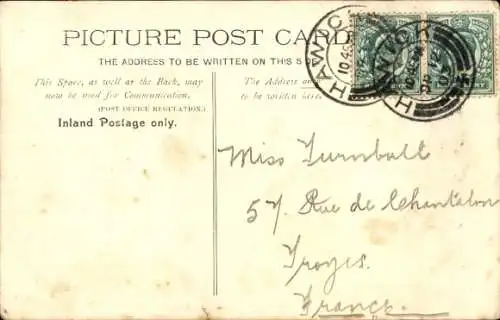 PICTURE POST CARD
THE ADDRESS TO BE WRITTEN ON THIS SIDE
This Space, as well as the Back, may
now be used for Communication.
(POST OFFICE REGULATION.)
Inland Postage only.
The Address
to be written here.
HAWICK
HAWICK
Miss Turnbull
57 Rue de Chantalon
Troyes
France